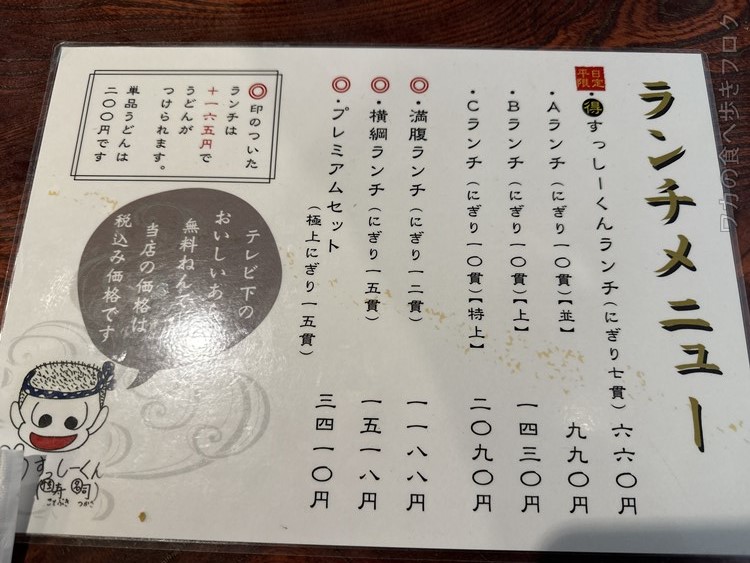 ランチメニュー
平日限定
・得すっしーくんランチ(にぎり七貫) 六六〇円
・Aランチ(にぎり一〇貫)【並】 九九〇円
・Bランチ(にぎり一〇貫)【上】 一四三〇円
・Cランチ(にぎり一〇貫)【特上】 二〇九〇円
◎・満腹ランチ(にぎり一二貫) 一一八八円
◎・横綱ランチ(にぎり一五貫) 一五一八円
◎・プレミアムセット
(極上にぎり一五貫) 三四一〇円
◎印のついた
ランチは
+一六五円で
うどんが
つけられます。
単品うどんは
二〇〇円です
テレビ下の
おいしいあ
無料ねんで
当店の価格は
税込み価格です
すっしーくん
ことぶき つかさ
ワカの食べ歩きブログ